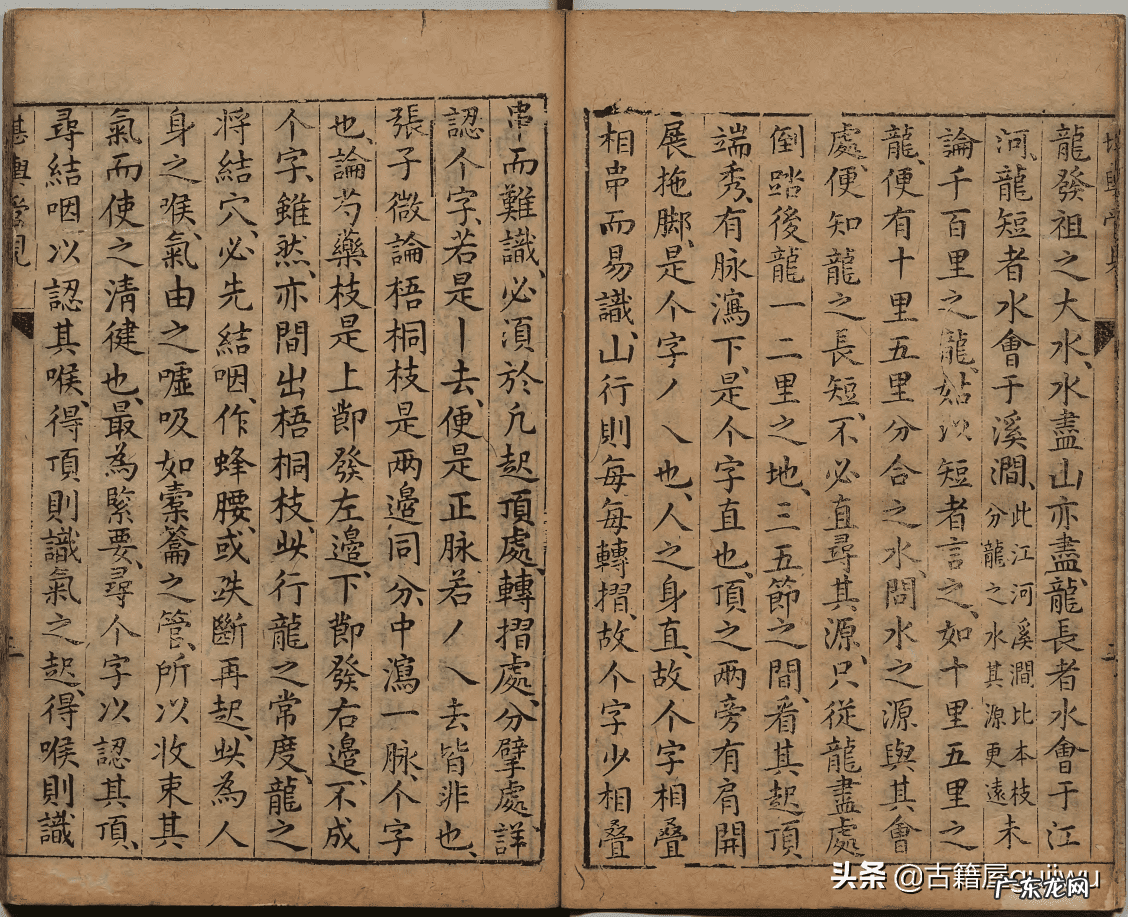 龍發祖之大水、水盡山亦盡、龍長者水會于江
河、龍短者水會于溪澗、此江河溪澗比本枝未分龍之水其源更遠
論千百里之龍、姑以短者言之、如十里五里之
龍、便有十里五里分合之水、問水之源與其會
處、便知龍之長短、不必直尋其源、只從龍盡處
倒踏後龍一二里之地、三五節之間、看其起頂
端秀、有脉瀉下、是个字直也、頂之两旁有肩開
展拖脚、是个字丿乀也、人之身直、故个字相叠
相串而易識、山行則每每轉摺、故个字少相叠
串而難識、必須於凢起頂處、轉摺處、分擘處、詳
認个字、若是丨去、便是正脉、若丿乀去皆非也、
張子微論梧桐枝是兩邉同分、中瀉一脉、个字
也、論芍藥枝是上節發左邉、下節發右邉、不成
个字、雖然、亦間出梧桐枝、此行龍之常度、龍之
將結穴、必先結咽、作蜂腰、或跌斷再起、此為人
身之喉、氣由之噓吸、如橐籥之管、所以收束其
氣而使之清健也、最為緊要、尋个字以認其頂、
尋結咽以認其喉、得頂則識氣之起、得喉則識
堪輿管見
頭条 @古籍屋gujiwu
广东龙网